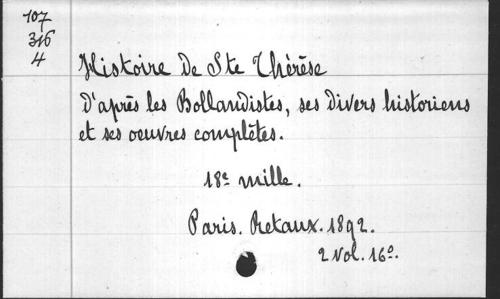 107
316
4
Histoire de Ste Thérèse
D'après les Bollandistes, ses divers historiens
et ses oeuvres complètes.
18e mille.
Paris. Retaux. 1892.
2 vol. 16o.